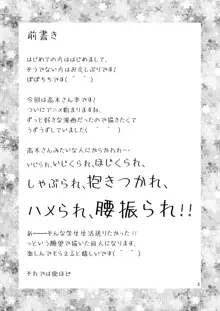 前書き
はじめての方ははじめまして、
そうでない方はお久しぶりです!
ぽぽちちです(´ ｀ )
今回は高木さん本です!
ついにアニメ始まりますね、
ずっと好きな漫画だったので描きたくて
うずうずしていました(´ ｀ )
高木さんみたいな人にからかわれ…
いじられ、いじくられ、ほじくられ、
しゃぶられ、抱きつかれ、
ハメられ、腰振られ!!
あーーそんな学生生活送りたかった!!
っという願望で描いた故人になります、
楽しんでもらえると嬉しいです(´ ｀ )
それでは後ほど